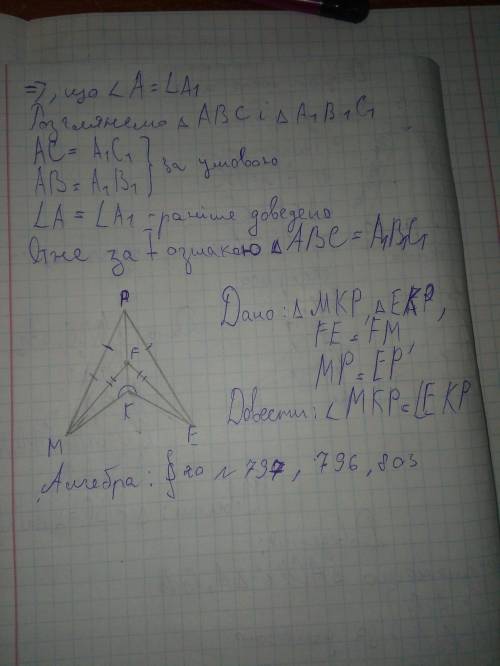 =>, що ∠A = ∠A₁
Розглянемо △ ABC і △ A₁B₁C₁
AC = A₁C₁
AB = A₁B₁ } за умовою
∠A = ∠A₁ - раніше доведено
Отже за I ознакою △ ABC = A₁B₁C₁
P
F
K
M
E
Дано: △ MKP, △ EKP,
FE = FM,
MP = EP
Довести: ∠ MKP = ∠EKP
Алгебра: § 20 № 797, 796, 803